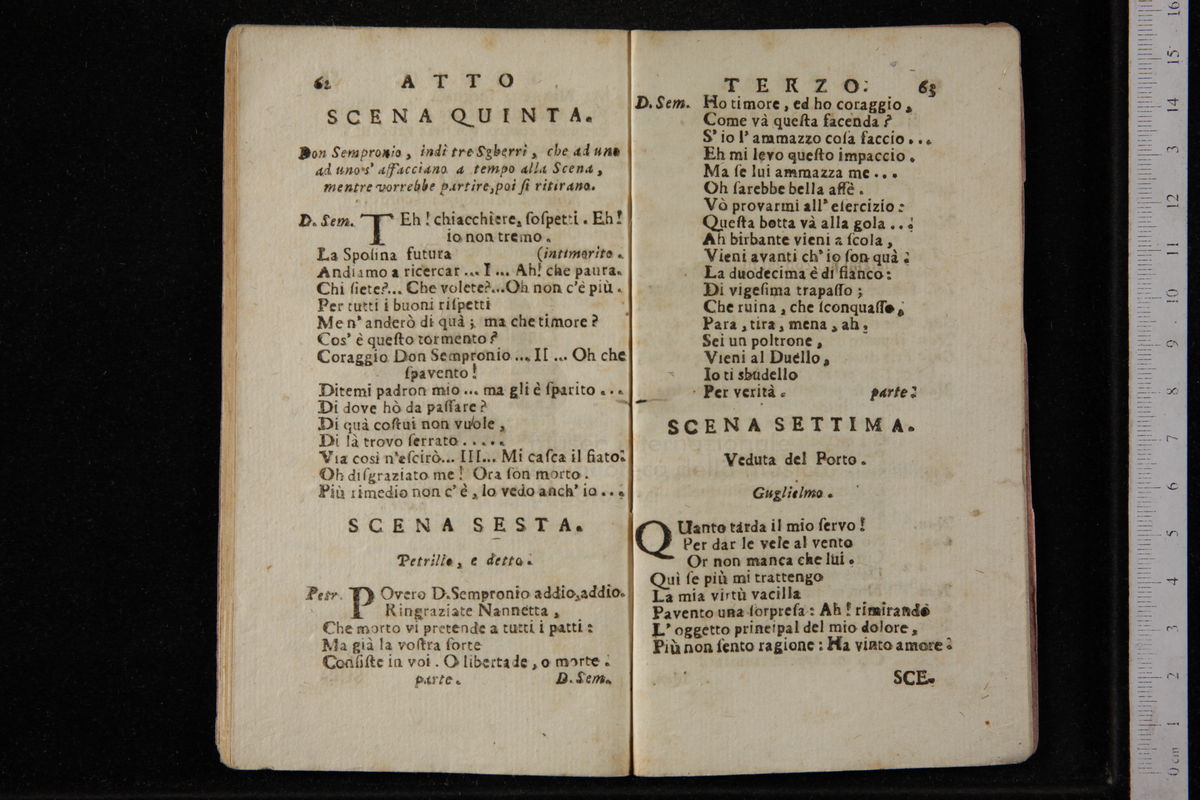 62 ATTO
SCENA QUINTA.
Don Sempronio, indi tre Sgherri, che ad uno
ad uno s' affacciano a tempo alla Scena,
mentre vorrebbe partire, poi ſi ritirano.
D. Sem. TEh! chiacchiere, ſoſpetti. Eh!
io non tremo.
La Spoſina futura (intimorito.
Andiamo a ricercar ... I ... Ah! che paura.
Chi ſiete?... Che volete?...Oh non c'è più.
Per tutti i buoni riſpetti
Me n' anderò di quà; ma che timore?
Cos' è queſto tormento?
Coraggio Don Sempronio ... II ... Oh che
ſpavento!
Ditemi padron mio ... ma gli è ſparito ...
Di dove hò da paſſare?
Di quà coſtui non vuole,
Di là trovo ſerrato .....
Via così n'eſcirò... III... Mi caſca il fiato.
Oh diſgraziato me! Ora ſon morto.
Più rimedio non c' è, lo vedo anch' io ...
SCENA SESTA.
Petrillo, e detto.
Petr. POvero D.Sempronio addio, addio.
Ringraziate Nannetta,
Che morto vi pretende a tutti i patti:
Ma già la voſtra ſorte
Conſiſte in voi. O libertade, o morte.
parte. D. Sem.
TERZO. 63
D. Sem. Ho timore, ed ho coraggio,
Come và queſta facenda?
S' io l' ammazzo coſa faccio ...
Eh mi levo queſto impaccio.
Ma ſe lui ammazza me ...
Oh ſarebbe bella affè.
Vò provarmi all' eſercizio:
Queſta botta và alla gola ...
Ah birbante vieni a ſcola,
Vieni avanti ch' io ſon quà.
La duodecima è di fianco:
Di vigeſima trapaſſo;
Che ruina, che ſconquaſſo,
Para, tira, mena, ah,
Sei un poltrone,
Vieni al Duello,
Io ti sbudello
Per verità. parte.
SCENA SETTIMA.
Veduta del Porto.
Guglielmo.
QUanto tarda il mio ſervo!
Per dar le vele al vento
Or non manca che lui.
Quì ſe più mi trattengo
La mia virtù vacilla
Pavento una ſorpreſa: Ah! rimirando
L' oggetto principal del mio dolore,
Più non ſento ragione: Ha vinto amore.
SCE.
0 cm 1 2 3 4 5 6 7 8 9 10 11 12 3 14 15 16